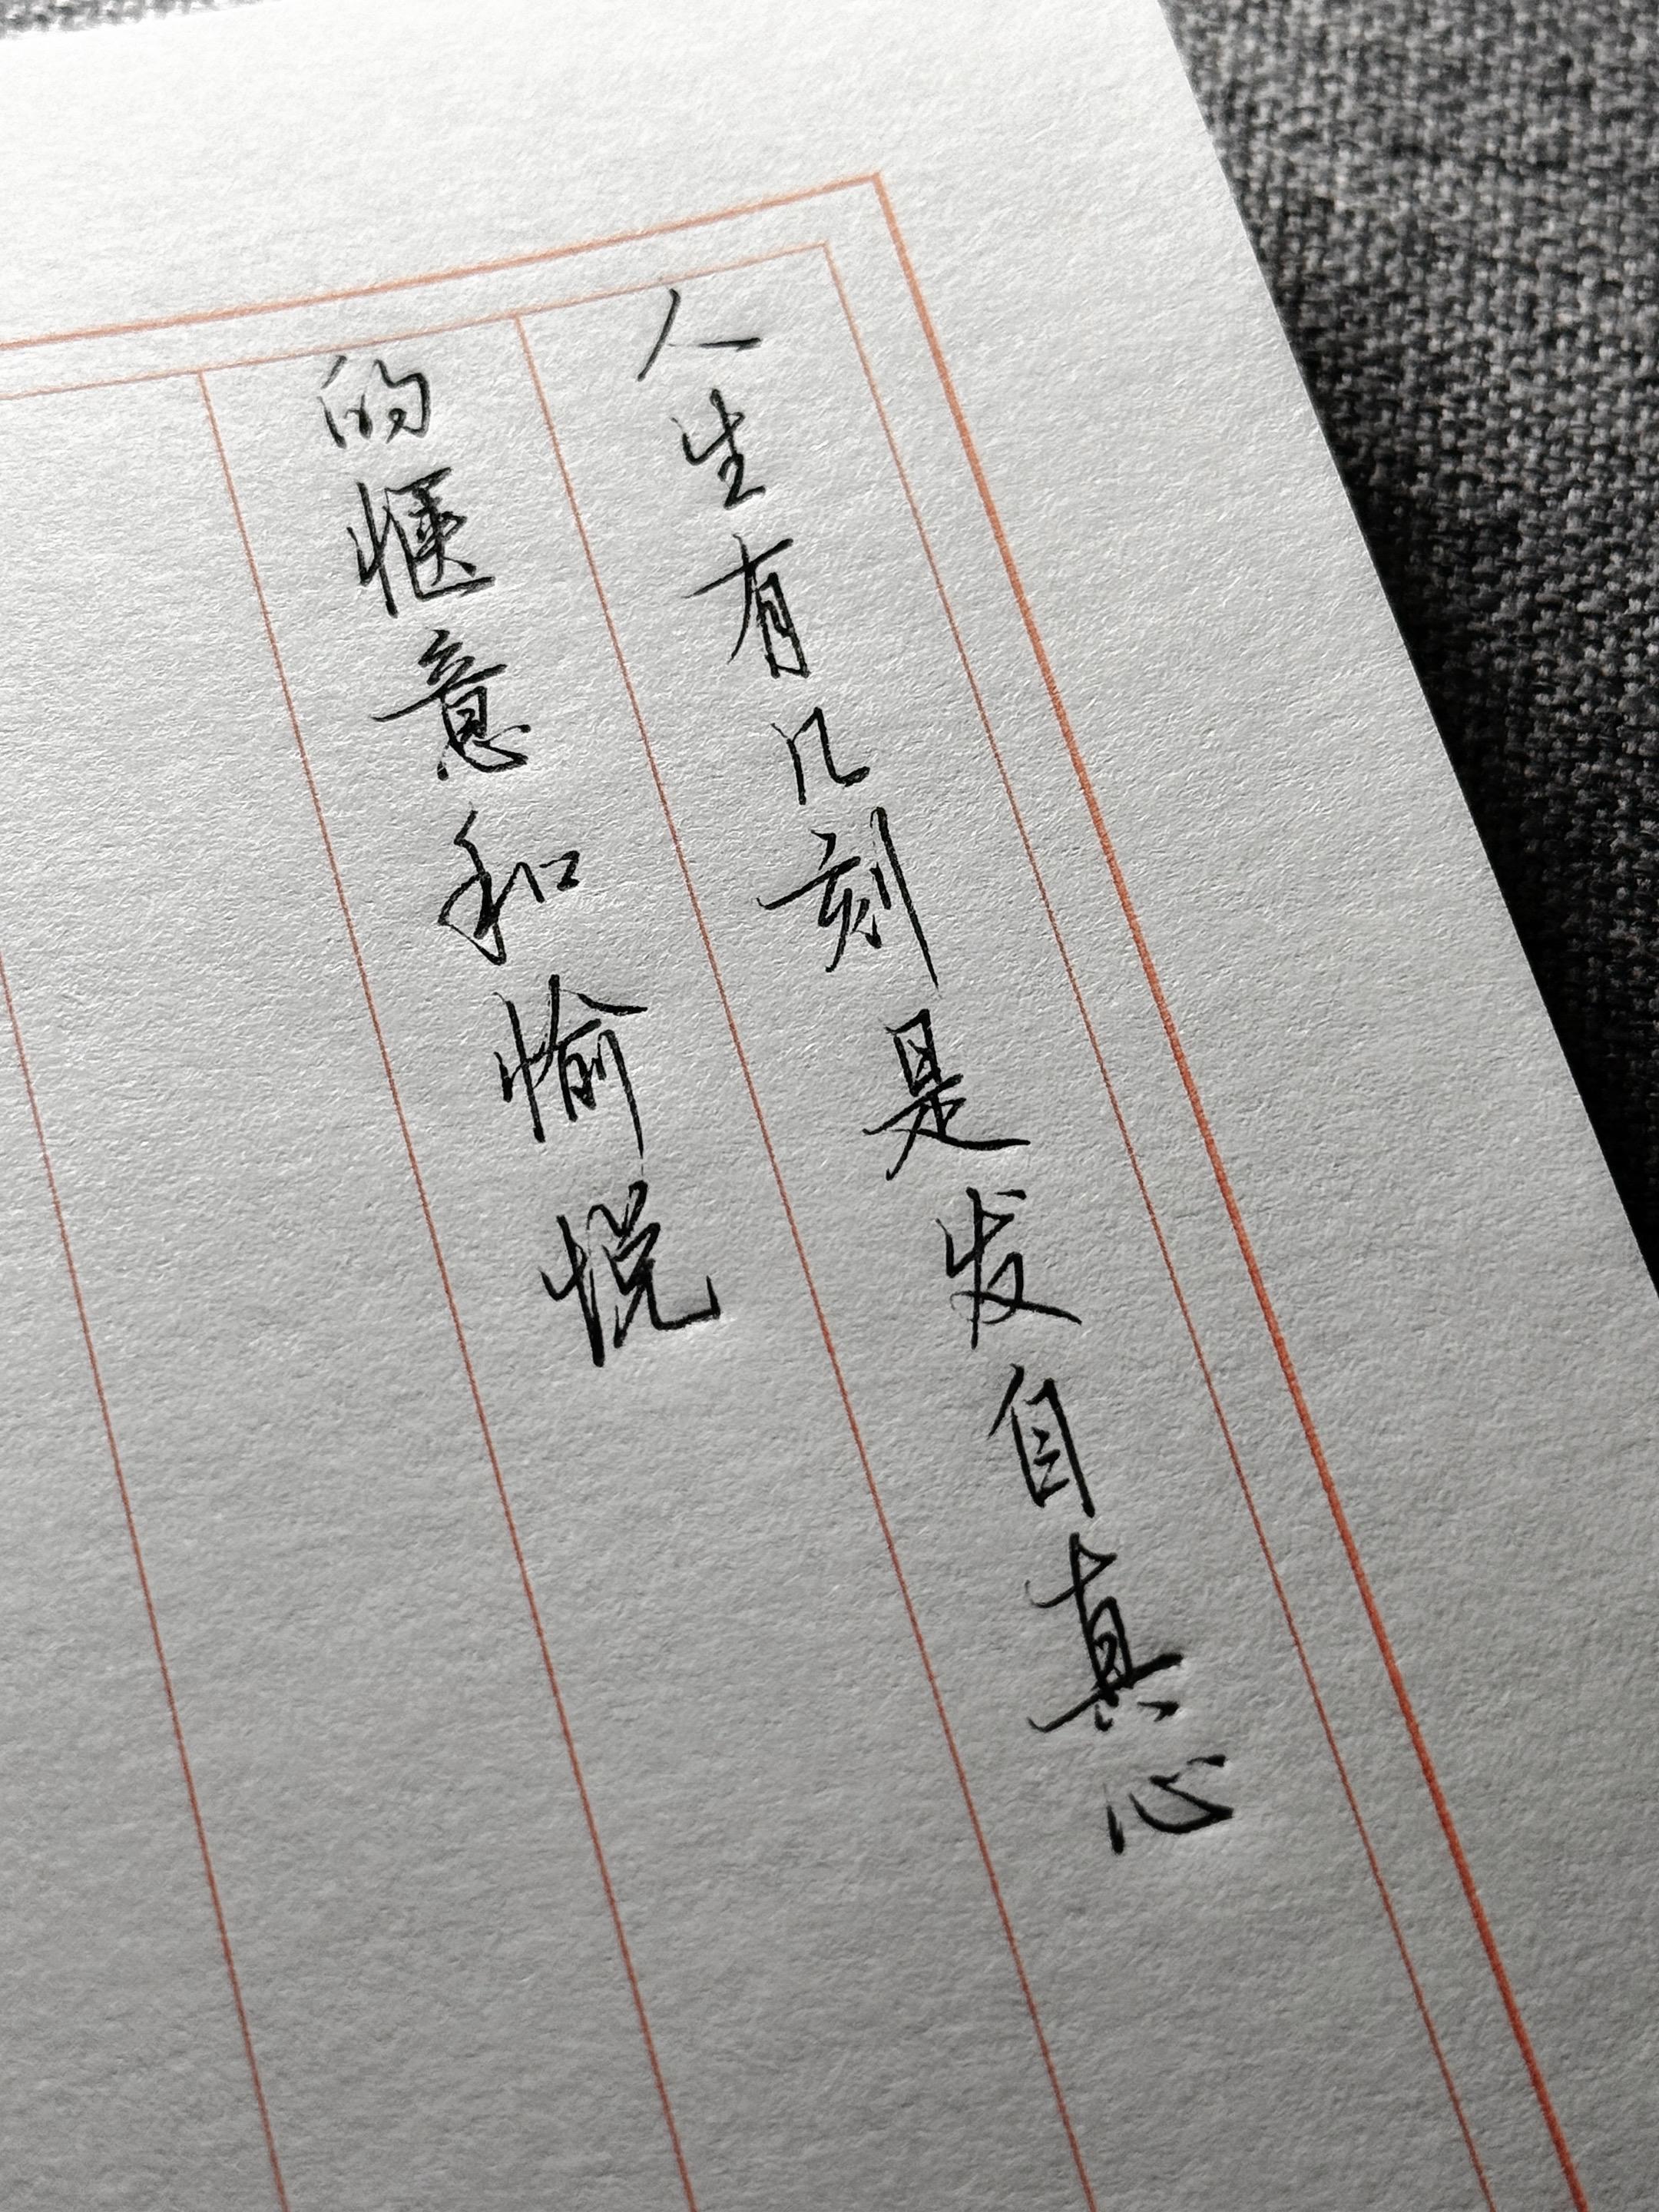 人生有几刻是发自真心
的惬意和愉悦